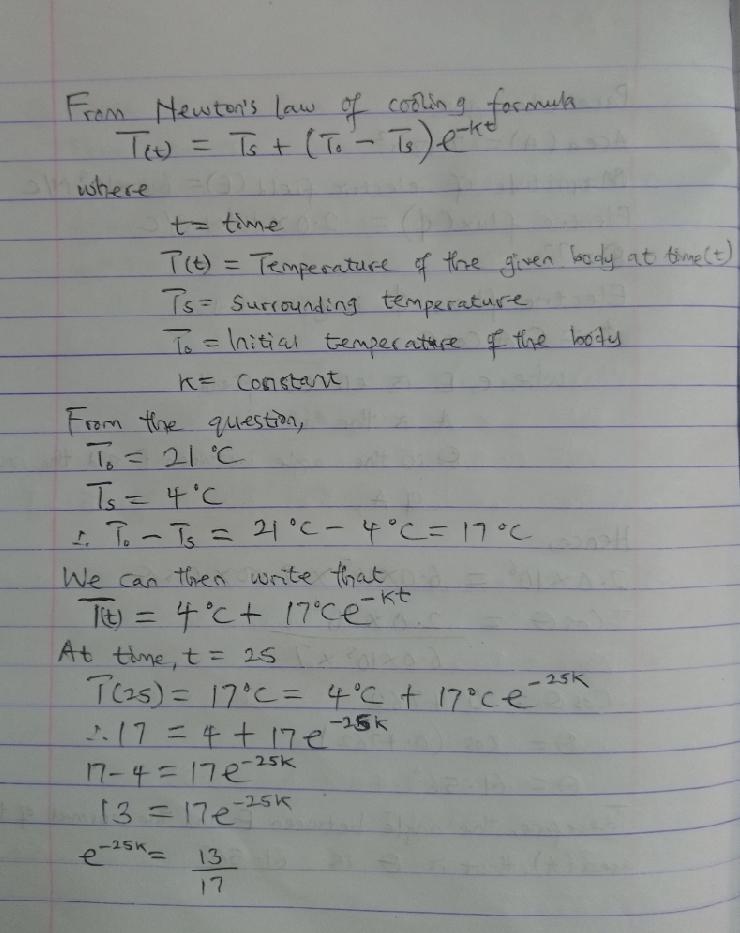 From Newton's law of cooling formula
T(t) = Ts + (To - Ts)e^-kt
where
t = time
T(t) = Temperature of the given body at time(t)
Ts = Surrounding temperature
To = Initial temperature of the body
K = Constant
From the question,
To = 21°C
Ts = 4°C
∴ To - Ts = 21°C - 4°C = 17°C
We can then write that
T(t) = 4°C + 17°Ce^-kt
At time, t = 25
T(25) = 17°C = 4°C + 17°Ce^-25K
∴ 17 = 4 + 17e^-25K
17-4 = 17e^-25K
13 = 17e^-25K
e^-25K = 13/17